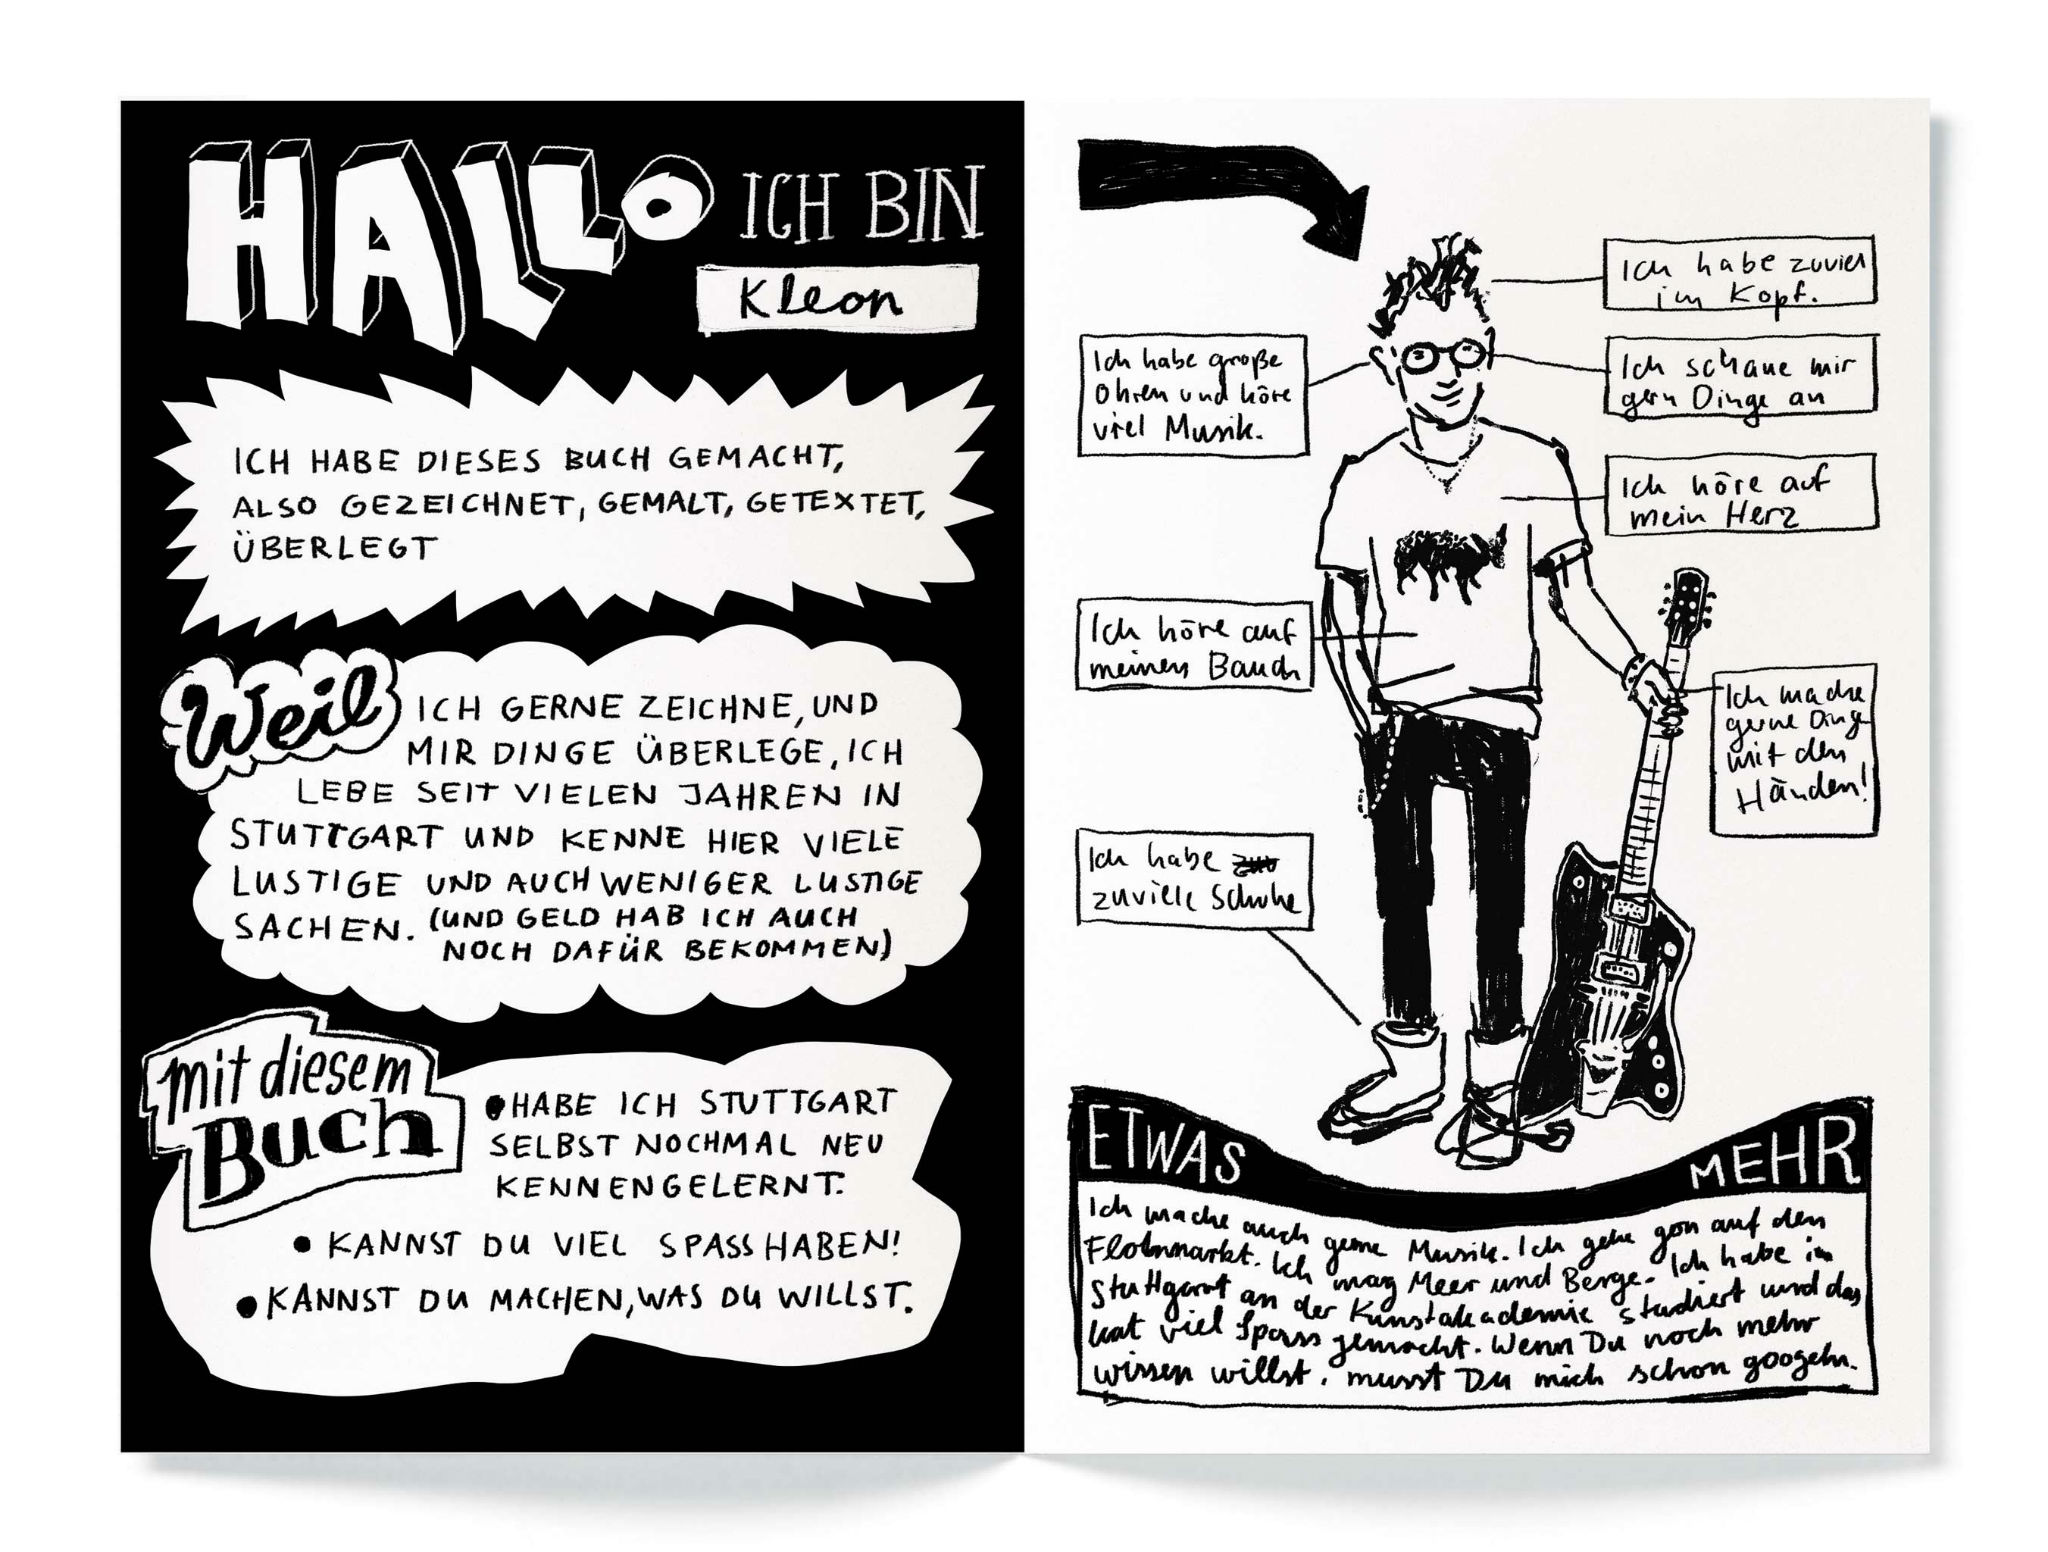 HALLO ICH BIN
Kleon
ICH HABE DIESES BUCH GEMACHT,
ALSO GEZEICHNET, GEMALT, GETEXTET,
ÜBERLEGT
Weil ICH GERNE ZEICHNE, UND
MIR DINGE ÜBERLEGE, ICH
LEBE SEIT VIELEN JAHREN IN
STUTTGART UND KENNE HIER VIELE
LUSTIGE UND AUCH WENIGER LUSTIGE
SACHEN. (UND GELD HAB ICH AUCH
NOCH DAFÜR BEKOMMEN)
mit diesem
Buch
• HABE ICH STUTTGART
SELBST NOCHMAL NEU
KENNENGELERNT.
• KANNST DU VIEL SPASS HABEN!
• KANNST DU MACHEN, WAS DU WILLST.
Ich habe zuviel
im Kopf.
Ich habe große
Ohren und höre
viel Musik.
Ich schaue mir
gern Dinge an
Ich höre auf
mein Herz
Ich höre auf
meinen Bauch
Ich mache
gerne Dinge
mit den
Händen!
Ich habe
zuviele Schuhe
ETWAS MEHR
Ich mache auch gerne Musik. Ich gehe gern auf den
Flohmarkt. Ich mag Meer und Berge. Ich habe in
Stuttgart an der Kunstakademie studiert und das
hat viel Spass gemacht. Wenn Du noch mehr
wissen willst, musst Du mich schon googeln.